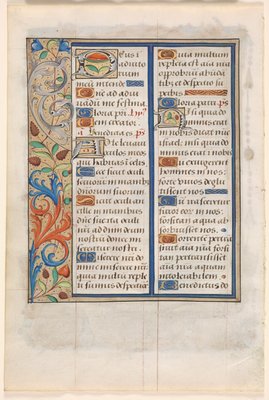 Deus in
adiuto
rium
meum intende
Domine ad adiu
vādū me festina.
Gloria pri. ymꝰ
Memento creator. añ
Benedicta es. ps
Ad te levavi
oculos meos
qui habitas ī celis
Ecce sicut oculi
servorum in manibus
dominorum suorum
Sicut oculi ancil
le in manibus
domine sue: ita oculi
nostri ad dominum deum
nostrum donec mi
sereatur nostri.
Miserere nostri do
mine miserere nostri:
quia multum reple
ti sumus despectione
Quia multum
repleta est aīa
opprobrium abūdā
tibus et despectio su
perbis
Gloria patri. ps
Nisi quia do
minus erat
in nobis dicat nūc
israel: nisi quia do
minus erat in nobis
Cum exurgerent
homines in nos:
forte vivos deglu
tissent nos
Cum irasceretur
furor eorum in nos:
forsitan aqua ab
sorbuisset nos.
Torrentem pertrā
sivit aīa nostra:
forsitan pertransisset
aīa nostra aquam
intolerabilem
Benedictus do